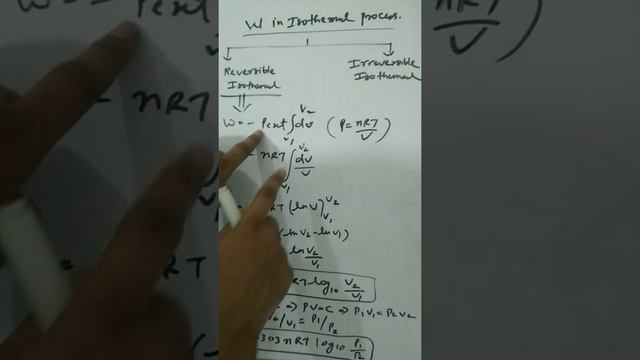 W in Isothermal process.
Reversible Isothermal
Irreversible Isothermal
W = - Pext ∫ dv (P = nRT/V)
V2 V1
- nRT ∫ dv/V
V2 V1
RT (ln V) V2 V1
(ln V2 - ln V1)
ln V2/V1
RT log10 V2/V1
⇒ PV = C ⇒ P1V1 = P2V2
2/V1 = P1/P2
303 nRT log10 P1/P2